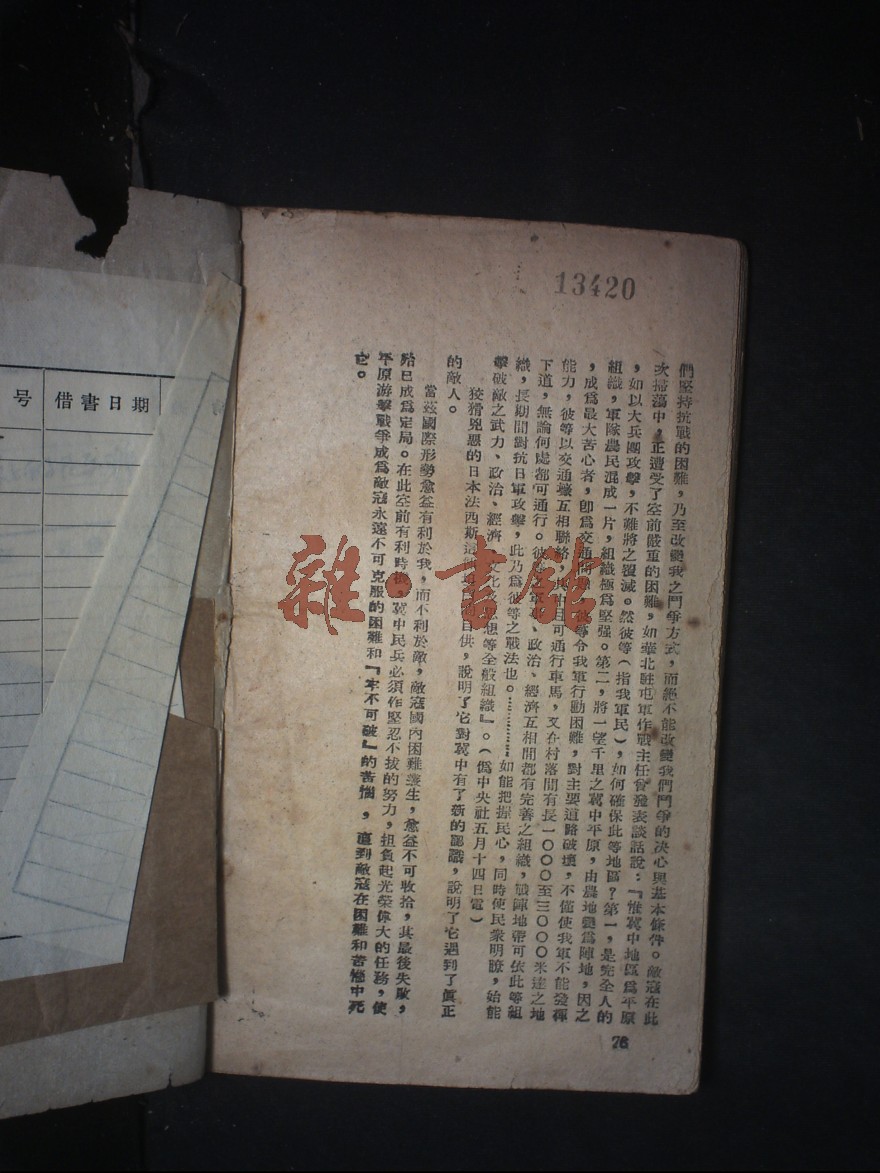 13420
們堅持抗戰的困難，乃至改變我之鬥爭方式，而絕不能改變我們鬥爭的决心與基本條件。敵寇在此
次掃蕩中，正遭受了空前嚴重的困難，如華北駐屯軍作戰主任曾發表談話說：『惟冀中地區爲平原
，如以大兵團攻擊，不難將之覆滅。然彼等（指我軍民），如何確保此等地區？第一，是完全人的
組織，軍隊農民混成一片，組織極爲堅强。第二，將一望千里之冀中平原，由農地變爲陣地，因之
，成爲最大苦心者，卽爲交通問題，彼等令我軍行動困難，對主要道路破壞，不僅使我軍不能發揮
能力，彼等以交通壕互相聯絡，其中且可通行車馬，又在村落間有長一〇〇〇至三〇〇〇米達之地
下道，無論何處都可通行。彼等之軍事、政治、經濟互相間都有完善之組織，戰陣地帶可依此等組
織，長期間對抗日軍攻擊，此乃爲彼等之戰法也。…………如能把握民心，同時使民衆明瞭，始能
擊破敵之武力、政治、經濟、文化及思想等全般組織』。（僞中央社五月十四日電）
狡猾兇惡的日本法西斯這個自供，說明了它對冀中有了新的認識，說明了它遇到了眞正
的敵人。
當茲國際形勢愈益有利於我，而不利於敵，敵寇國內困難叢生，愈益不可收拾，其最後失敗，
殆已成爲定局。在此空前有利時機，冀中民兵必須作堅忍不拔的努力，担負起光榮偉大的任務，使
平原游擊戰爭成爲敵寇永遠不可克服的困難和『牢不可破』的苦惱，直到敵寇在困難和苦惱中死
亡。
76
号
借書日期
雜·書館